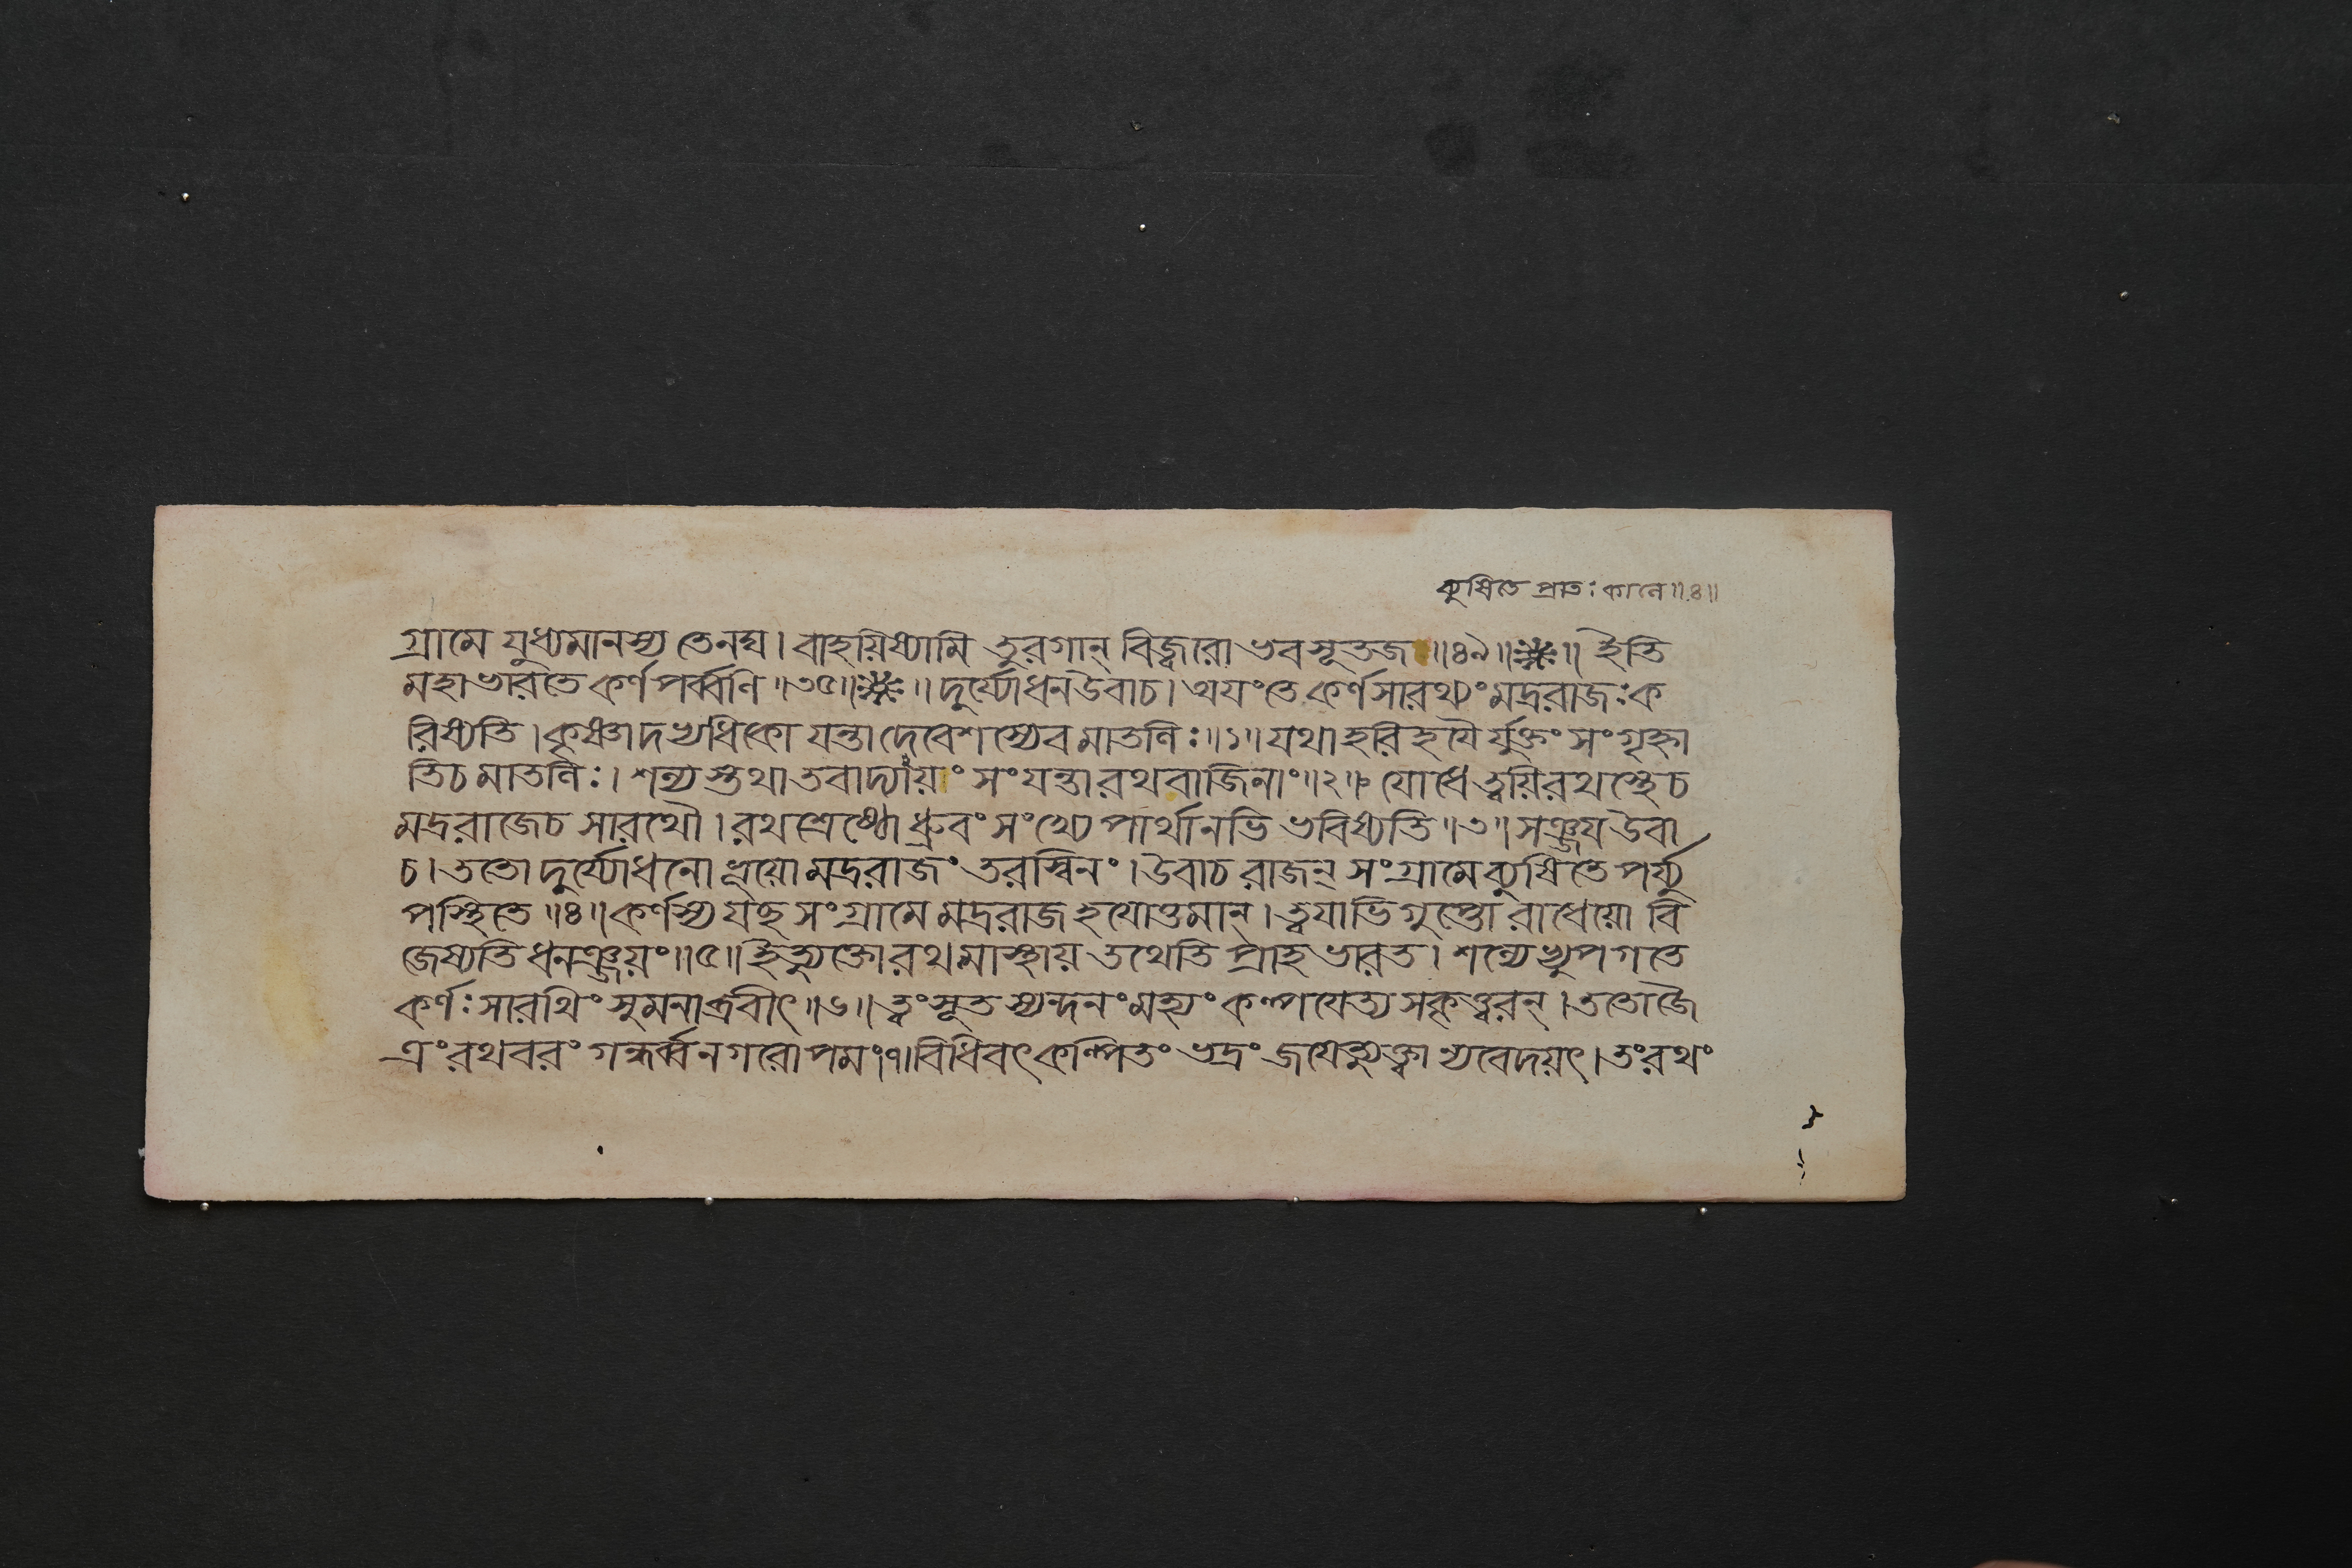 ব্যুষিতে প্রাতঃকালে॥৪॥
গ্রামে যুধ্যমানস্য তেনঘ। বাহয়িষ্যামি তুরগান্ বিজ্বরো ভবসূতজ॥৪৯॥❋॥ ইতি
মহাভারতে কর্ণপর্ব্বণি॥৩৫॥❋॥দুর্য্যোধনউবাচ।অয়ংতে কর্ণসারথ্যংমদ্ররাজঃক
রিষ্যতি।কৃষ্ণাদভ্যধিকো যন্তাদেবেশস্যেবমাতলিঃ॥১॥যথাহরিহয়ৈর্যুক্তং সংগৃহ্না
তিচমাতলিঃ। শল্যস্তথাতবাদ্যায়ং সংযন্তারথবাজিনাং॥২॥ যোধেত্বয়িরথস্থেচ
মদ্ররাজেচ সারথৌ।রথশ্রেষ্ঠোধ্রুবংসংখ্যে পার্থানভি ভবিষ্যতি॥৩॥সঞ্জয়উবা
চ।ততোদুর্য্যোধনো ভূয়োমদ্ররাজং তরস্বিনং।উবাচরাজন্ সংগ্রামেব্যুষিতেপর্য্যু
পস্থিতে॥৪॥কর্ণস্যযচ্ছসংগ্রামেমদ্ররাজহয়োত্তমান্।ত্বয়াভিগুপ্তো রাধেয়ো বি
জেষ্যতিধনঞ্জয়ং॥৫॥ইত্যুক্তোরথমাস্থায় তথেতিপ্রাহভারত। শল্যেভ্যুপগতে
কর্ণঃসারথিংসুমনাব্রবীৎ॥৬॥ত্বংসূতস্যন্দনংমহ্যংকল্পয়েত্যসকৃত্ত্বরন্।ততোজৈ
ত্রংরথবরং গন্ধর্ব্বনগরোপমং৭॥বিধিবৎকল্পিতং ভদ্রং জয়েত্যুক্ত্বান্যবেদয়ৎ।তংরথং